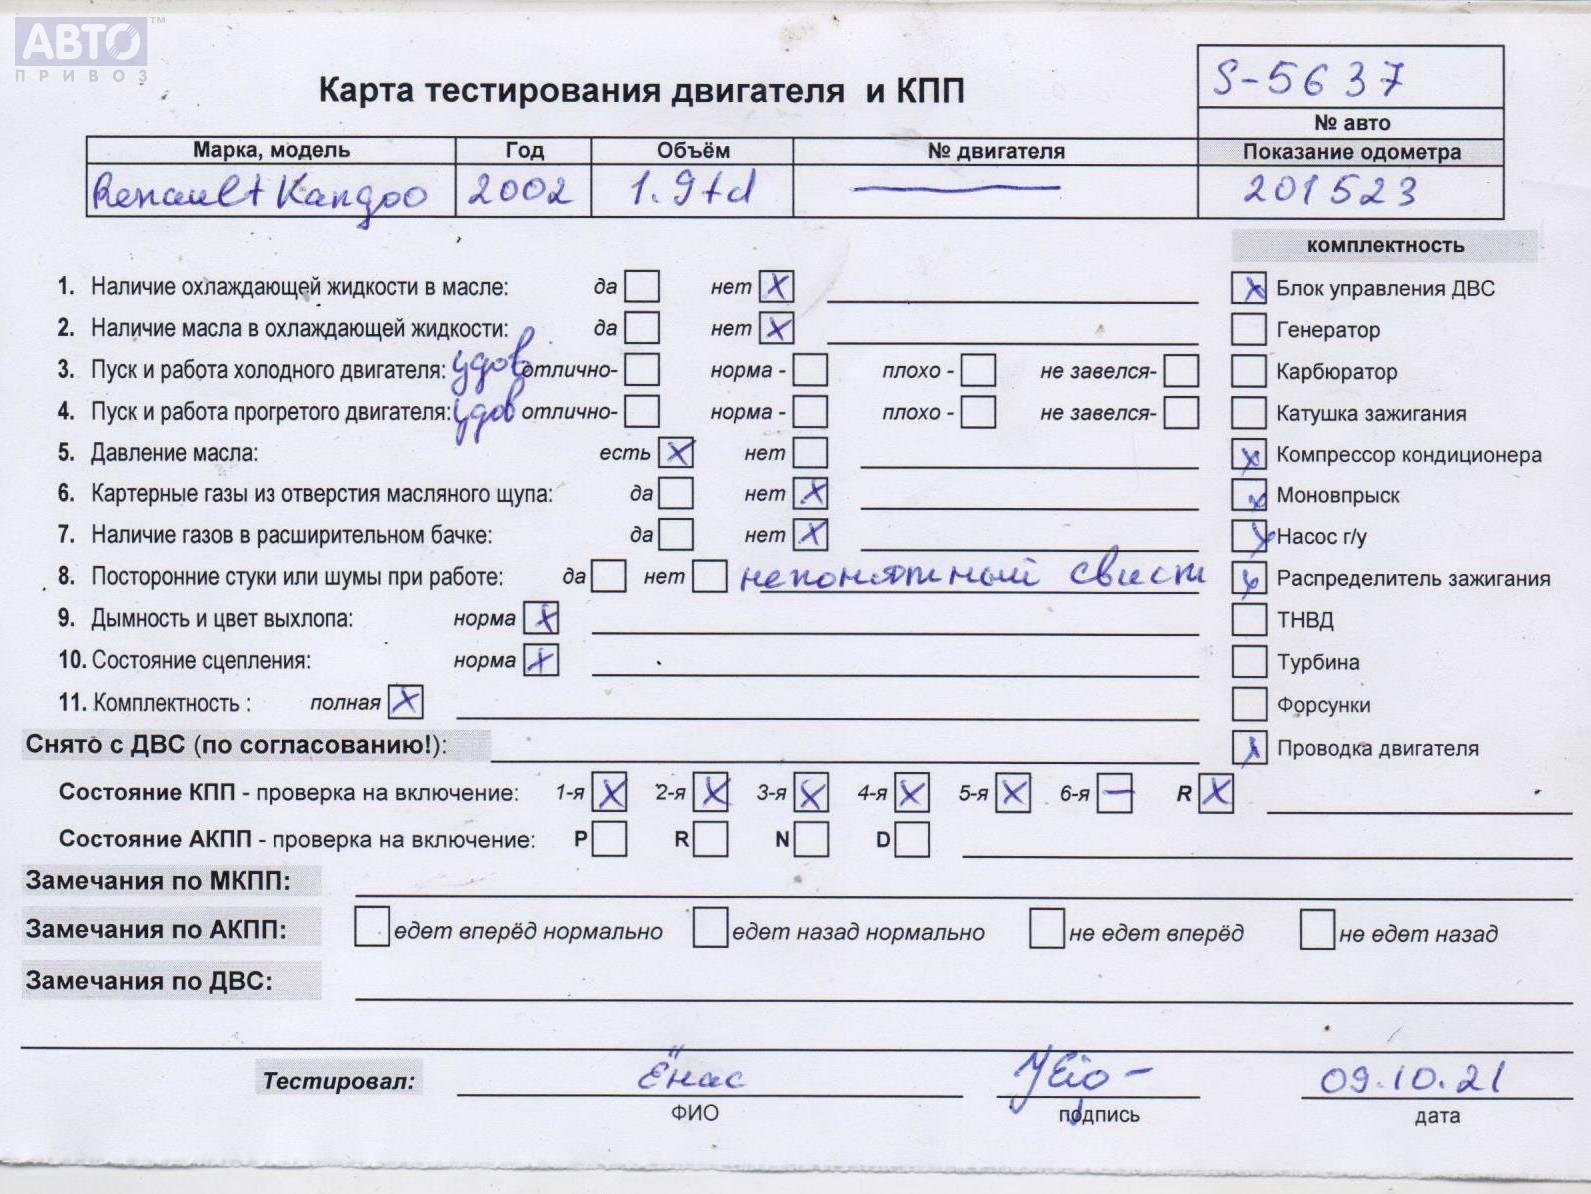 АВТО™
ПРИВОЗ
Карта тестирования двигателя и КПП
S-5637
№ авто
Марка, модель Год Объём № двигателя Показание одометра
Renault Kangoo 2002 1.9td — 201523
комплектность
1. Наличие охлаждающей жидкости в масле: да нет X
Блок управления ДВС X
2. Наличие масла в охлаждающей жидкости: да нет X
Генератор
3. Пуск и работа холодного двигателя: удов отлично- норма - плохо - не завелся-
Карбюратор
4. Пуск и работа прогретого двигателя: удов отлично- норма - плохо - не завелся-
Катушка зажигания
5. Давление масла: есть X нет
X Компрессор кондиционера
6. Картерные газы из отверстия масляного щупа: да нет X
X Моновпрыск
7. Наличие газов в расширительном бачке: да нет X
X Насос г/у
8. Посторонние стуки или шумы при работе: да нет непонятный свист
X Распределитель зажигания
9. Дымность и цвет выхлопа: норма X
ТНВД
10. Состояние сцепления: норма X
Турбина
11. Комплектность : полная X
Форсунки
Снято с ДВС (по согласованию!):
X Проводка двигателя
Состояние КПП - проверка на включение: 1-я X 2-я X 3-я X 4-я X 5-я X 6-я — R X
Состояние АКПП - проверка на включение: P R N D
Замечания по МКПП:
Замечания по АКПП: едет вперёд нормально едет назад нормально не едет вперёд не едет назад
Замечания по ДВС:
Тестировал: Ёнас 09.10.21
ФИО подпись дата